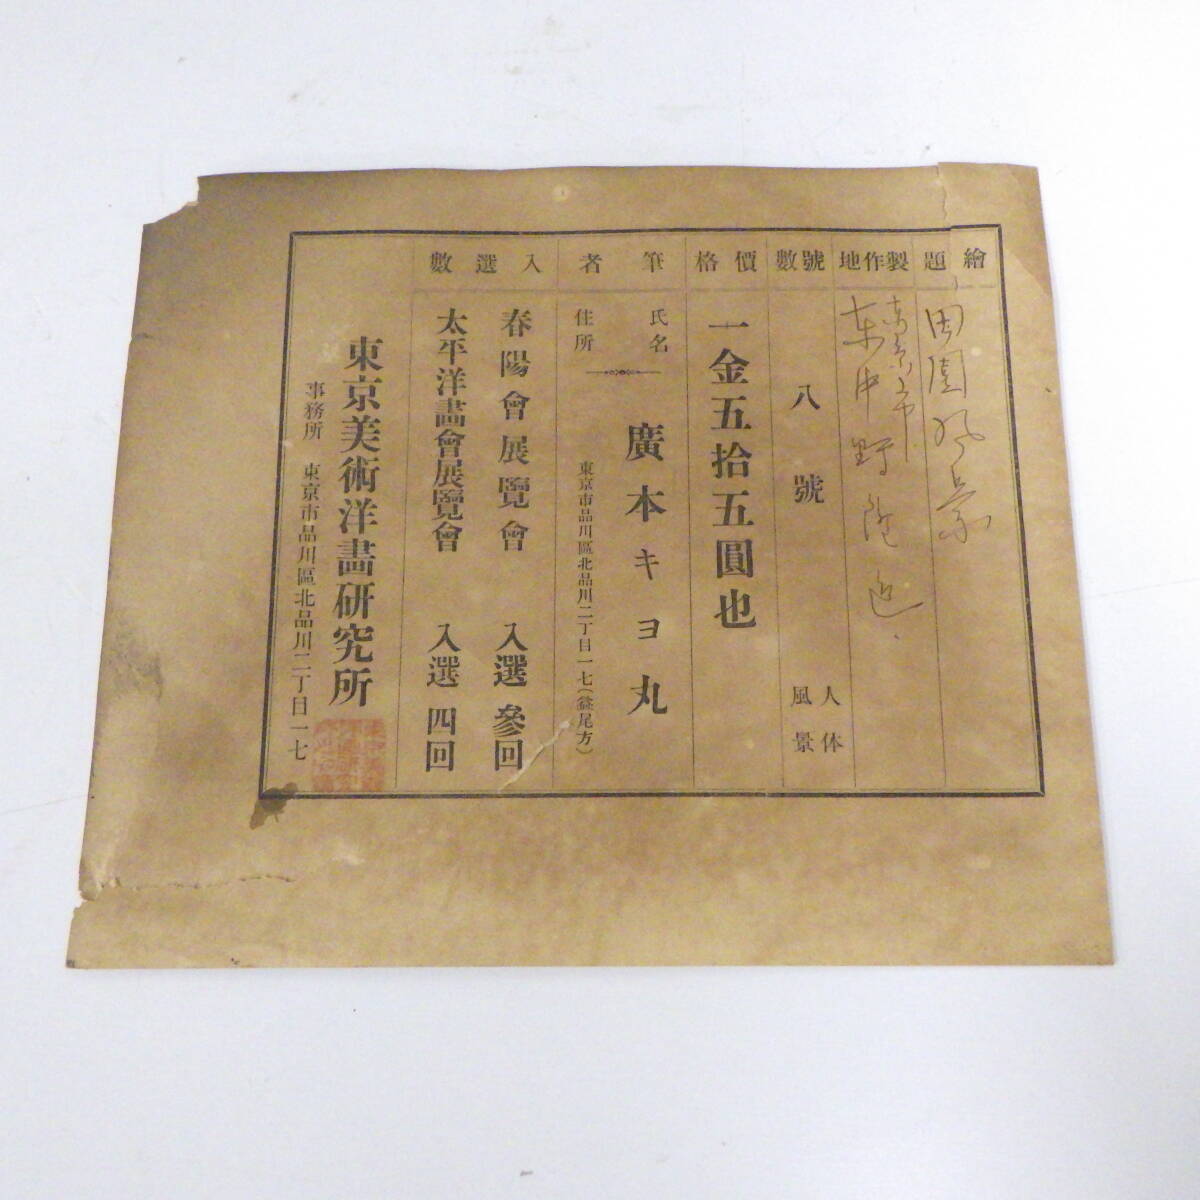 繪題
田園風景
製作地
東京市
東中野附近
號數
八號
人体
風景
價格
一金五拾五圓也
筆者
氏名
廣本キヨ丸
住所
東京市品川區北品川二丁目一七(益尾方)
入選數
春陽會展覽會 入選 參回
太平洋畵會展覽會 入選 四回
東京美術洋畵研究所
事務所 東京市品川區北品川二丁目一七